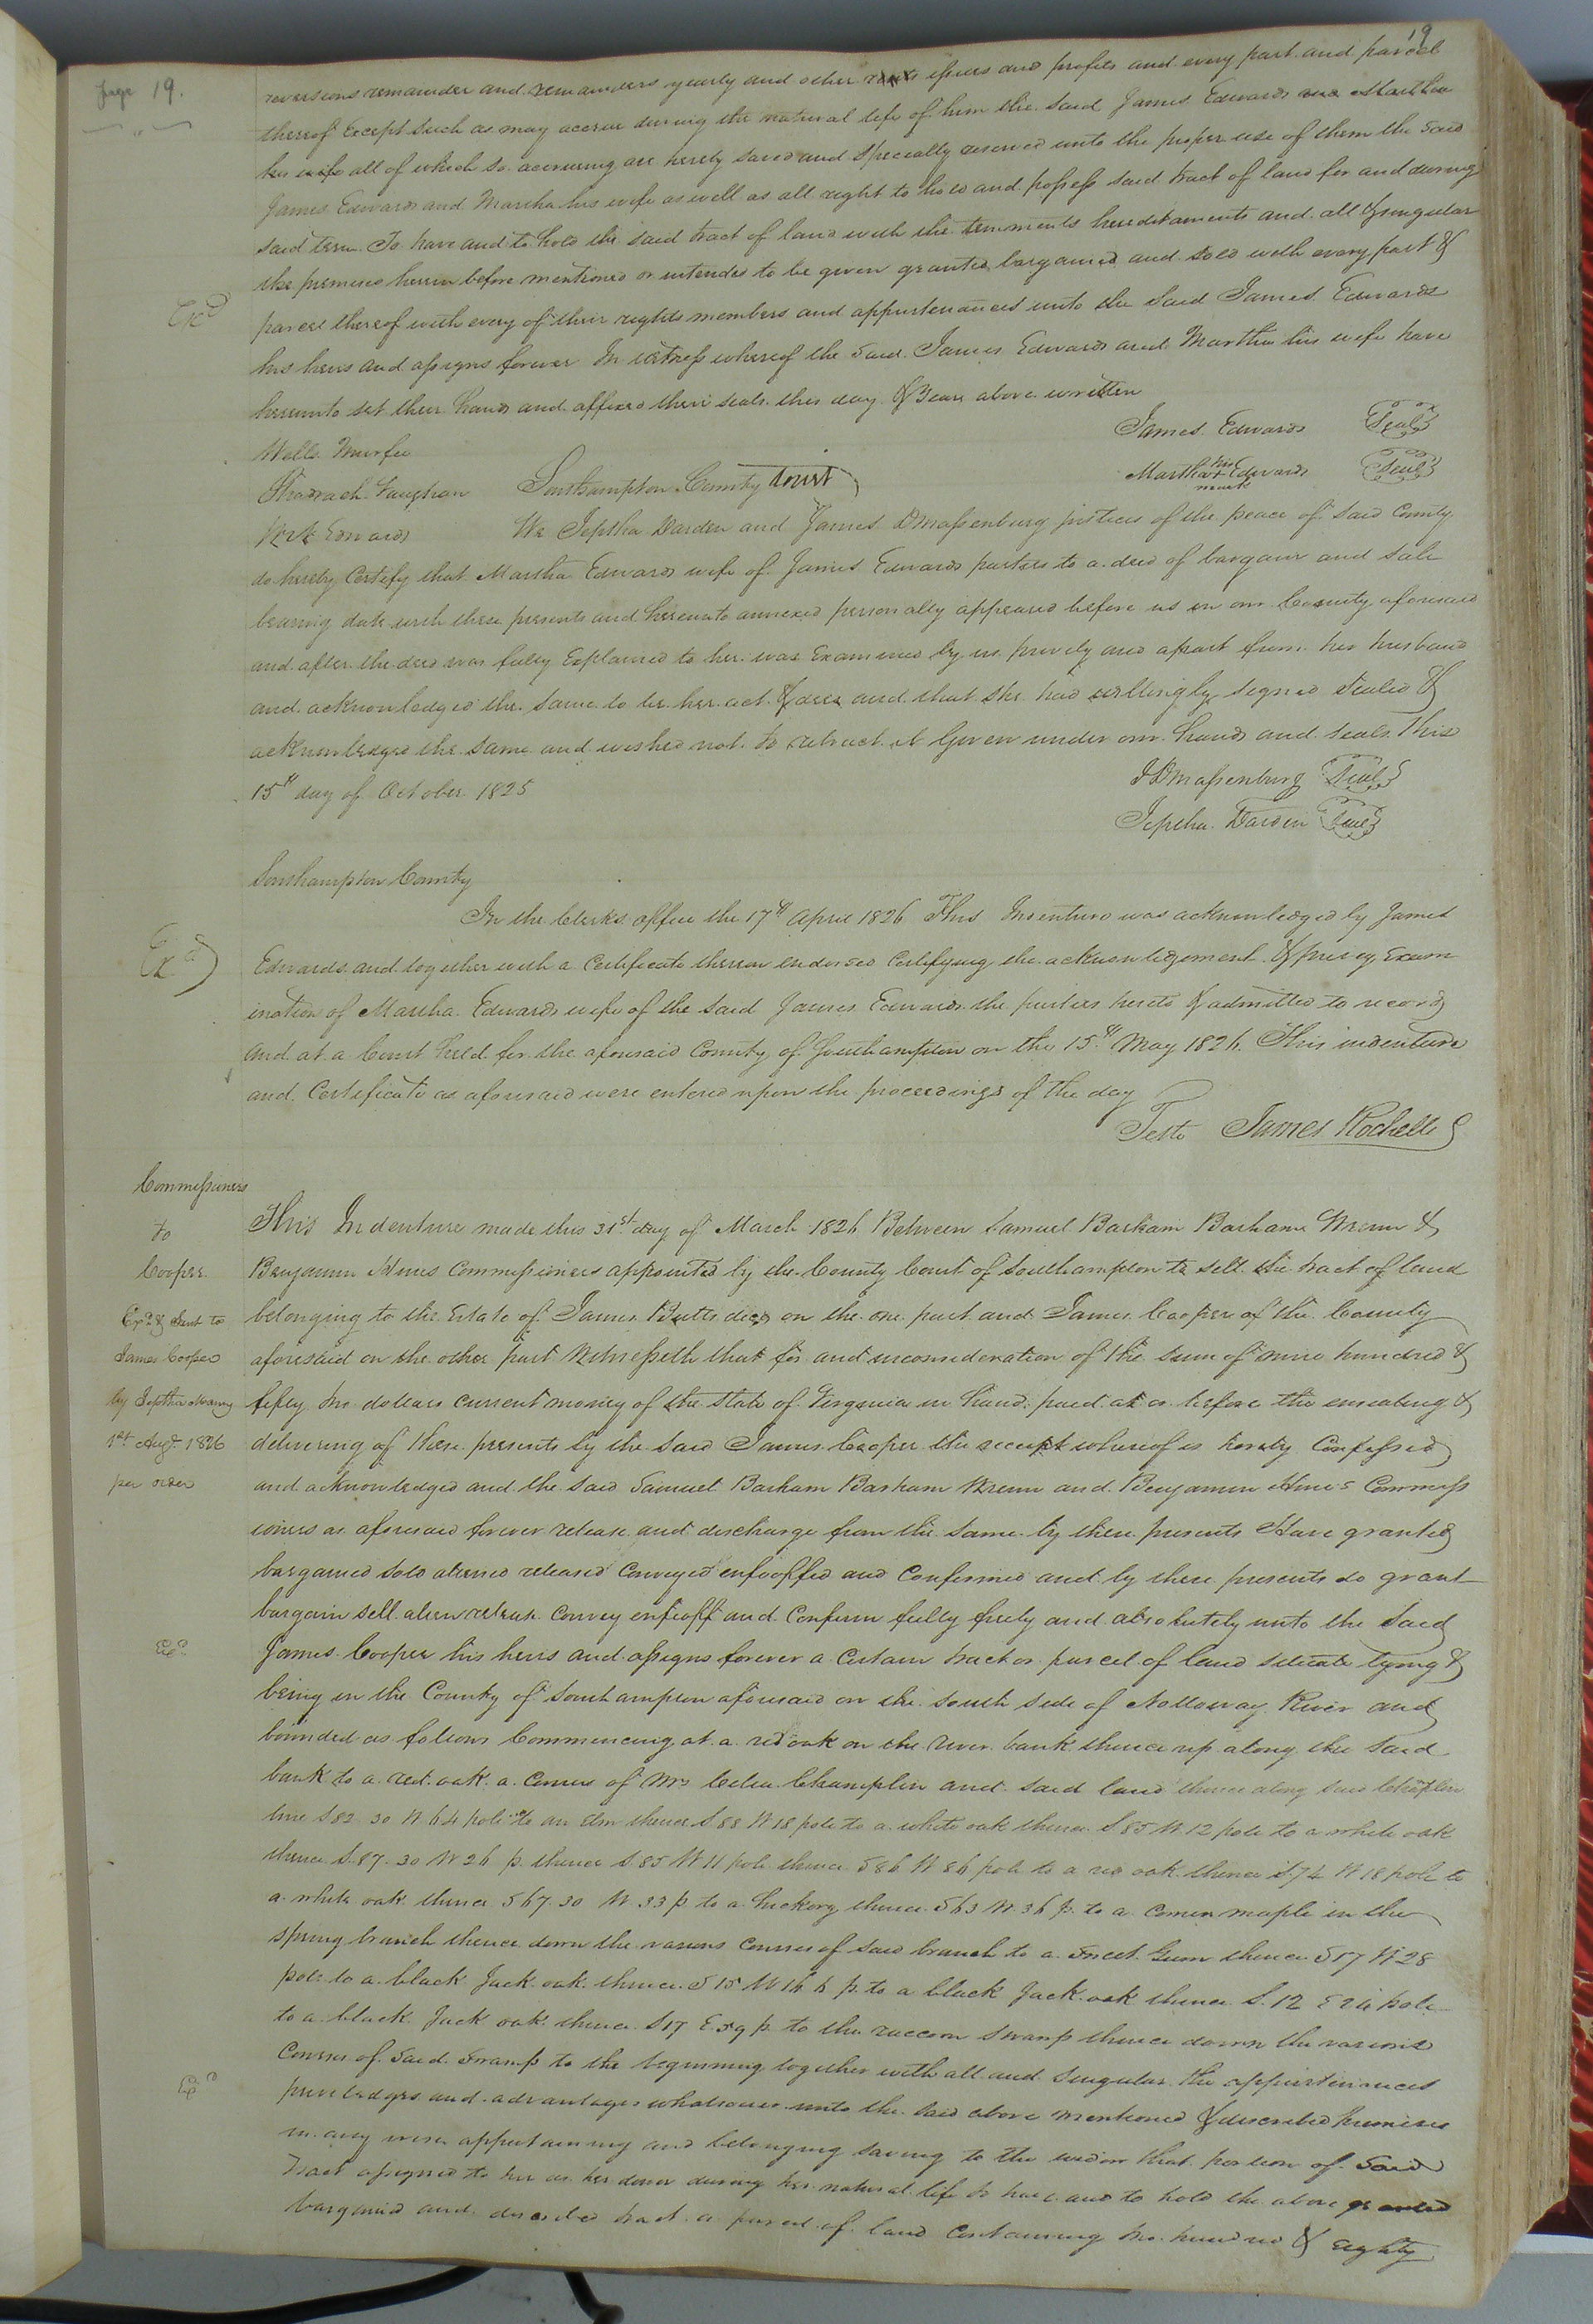 19
page 19.
reversions remainder and remainders yearly and other rents issues and profits and every part and parcel
thereof Except such as may accrue during the natural life of him the said James Edwards and Martha
his wife all of which so accruing are hereby saved and specially reserved unto the proper use of them the said
James Edwards and Martha his wife as well as all right to hold and possess said tract of land for and during
said term. To have and to hold the said tract of land with the tenements hereditaments and all & singular
the premises herein before mentioned or intended to be given granted bargained and sold with every part &
parcel thereof with every of their rights members and appurtenances unto the said James Edwards
his heirs and assigns forever In witness whereof the said James Edwards and Martha his wife have
hereunto set their hands and affixed their seals this day & Year above written
James Edwards Seal
Wells Murfee
Martha her + mark Edwards Seal
Shadrach Vaughan Southampton County Court
Edwards We Jeptha Darden and James D Massenburg justices of the peace of said County
do hereby Certify that Martha Edwards wife of James Edwards parties to a deed of bargain and sale
bearing date with these presents and hereunto annexed personally appeared before us in our County aforesaid
and after the deed was fully Explained to her was Examined by us privily and apart from her husband
and acknowledged the same to be her act & deed and that she had willingly signed Sealed &
acknowledged the same and wished not to retract it Given under our hands and seals this
15th day of October 1825
J D Massenburg Seal
Jeptha Darden Seal
Southampton County
In the Clerks office the 17th April 1826 This Indenture was acknowledged by James
Exd
Edwards and together with a Certificate thereon endorsed Certifying the acknowledgement & privy Exam
ination of Martha Edwards wife of the said James Edwards the parties hereto & admitted to record
And at a Court held for the aforesaid County of Southampton on the 15th May 1826. This indenture
and Certificate as aforesaid were entered upon the proceedings of the day
Teste James Rochelle
Commissioners
to
Cooper
Exd & Sent to
James Cooper
by Jeptha
1st Augt 1826
per order
This Indenture made this 31st day of March 1826 Between Samuel Barham Barham Wrenn &
Benjamin Hines Commissioners appointed by the County Court of Southampton to sell the tract of land
belonging to the Estate of James Butts decd on the one part and James Cooper of the County
aforesaid on the other part Witnesseth that for and inconsideration of the sum of nine hundred &
fifty two dollars current money of the State of Virginia in hand paid at or before the ensealing &
delivering of these presents by the said James Cooper the receipt whereof is hereby Confessed
and acknowledged and the said Samuel Barham Barham Wrenn and Benjamin Hines Commiss
ioners as aforesaid forever release and discharge from the same by these presents Have granted
bargained sold aliened released Conveyed enfeoffed and Confirmed and by these presents do grant
bargain sell alien release Convey enfeoff and Confirm fully freely and absolutely unto the Said
James Cooper his heirs and assigns forever a Certain tract or parcel of land situate lying &
being in the County of Southampton aforesaid on the south side of Nottoway River and
bounded as follows Commencing at a red oak on the river bank thence up along the said
bank to a red oak a Corner of Mrs Celia Champlin and said land thence along said Chaplin
line S 82 30 W 64 pole to an Elm thence S 88 W 18 pole to a white oak thence S 85 W 12 pole to a white oak
thence S 87. 30 W 26 p. thence S 85 W 11 pole thence S 86 W 86 pole to a red oak thence S 74 W 18 pole to
a white oak thence S 67. 30 W 33 p to a hickory thence S 63 W 36 p. to a Corner maple in the
spring branch thence down the various Courses of said branch to a Sweet Gum thence S 17 W 28
pole to a black Jack oak thence S 15 W 166 p. to a black Jack oak thence S. 12 E 24 pole
to a black Jack oak thence S 17 E 59 p to the raccoon Swamp thence down the various
Courses of Said Swamp to the beginning together with all and Singular the appurtenances
priviledges and advantages whatsoever unto the said above mentioned & described premises
in any wise appertaining and belonging saving to the widow that portion of Said
tract assigned to her as her dower during her natural life To have and to hold the above granted
bargained and described tract or parcel of land Containing two hundred & eighty